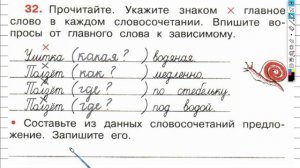 32. Прочитайте. Укажите знаком × главное
слово в каждом словосочетании. Впишите во-
просы от главного слова к зависимому.
×
Улитка (какая? ) водяная.
×
Ползёт (как? ) медленно.
×
Ползёт (где? ) по стебельку.
×
Ползёт (где? ) под водой.
• Составьте из данных словосочетаний предло-
жение. Запишите его.